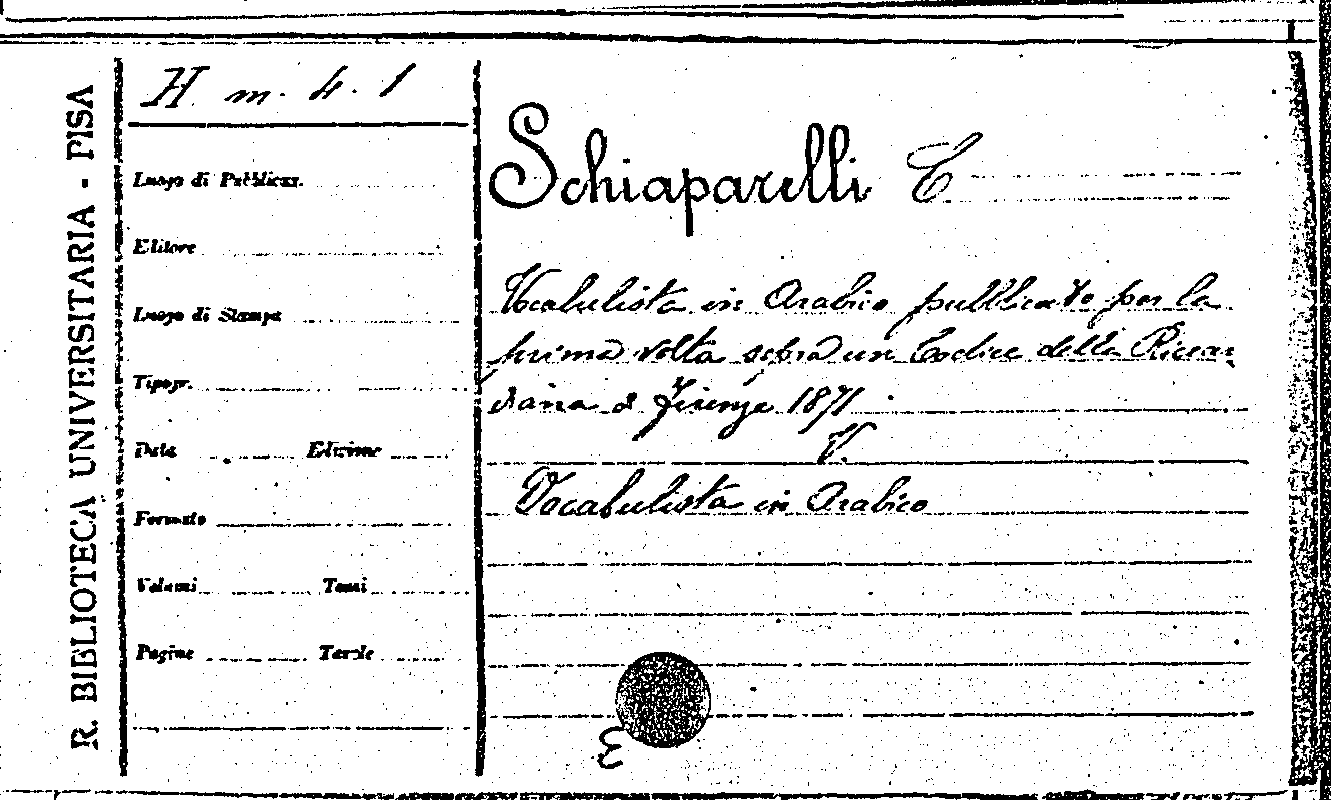 R. BIBLIOTECA UNIVERSITARIA - PISA
H. m. 4. 1
Luogo di Pubblicaz.
Editore
Luogo di Stampa
Tipogr.
Data Edizione
Formato
Volumi Tomi
Pagine Tavole
Schiaparelli C.
Vocabulista in Arabico pubblicato per la
prima volta sopra un Codice della Riccar
diana di Firenze 1871
V.
Vocabulista in Arabico